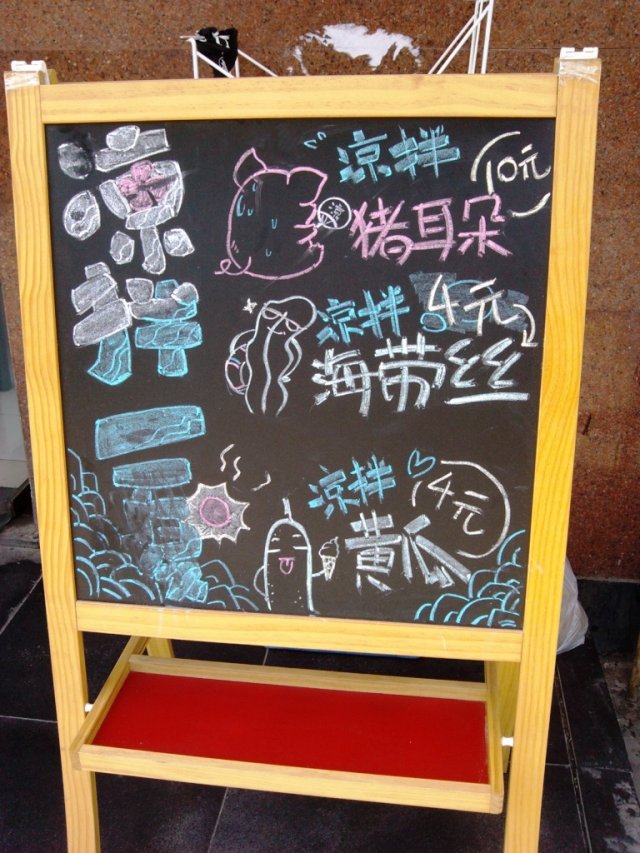 凉拌一夏
凉拌 10元
猪耳朵
凉拌 4元
海带丝
凉拌 4元
黄瓜